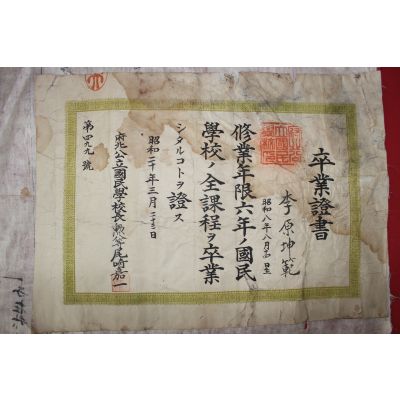 卒業證書
李原坤範
昭和八年八月 日生
修業年限六年ノ國民
學校ノ全課程ヲ卒業
シタルコトヲ證ス
昭和二十年三月二十三日
府北公立國民學校長 尾﨑嘉一
第四九九號